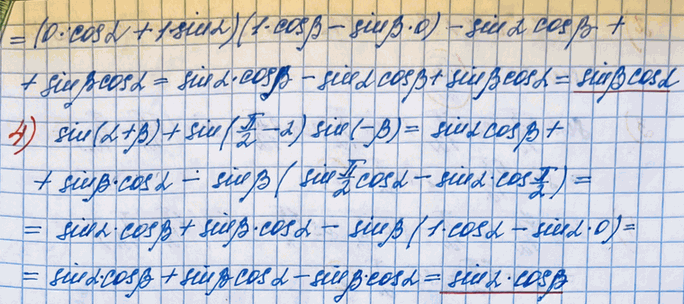 = (0·cosα + 1·sinα)(1·cosβ − sinβ·0) − sinα cosβ +
+ sinβcosα = sinα·cosβ − sinα cosβ + sinβcosα = sinβcosα
4) sin(α+β) + sin(π/2 − α) sin(−β) = sinα cosβ +
+ sinβ·cosα − sinβ (sin π/2 cosα − sinα·cos π/2) =
= sinα·cosβ + sinβ·cosα − sinβ (1·cosα − sinα·0) =
= sinα·cosβ + sinβ cosα − sinβ·cosα = sinα·cosβ